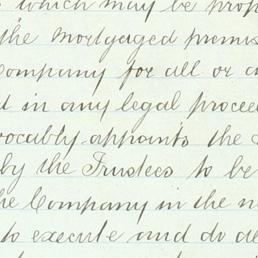 which may be prop
the Mortgaged premis
Company for all or a
d in any legal procee
vocably appoints the
by the Trustees to be
he Company in the n
to execute and do de